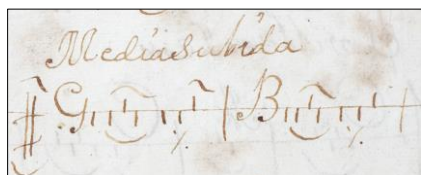 Mediasubida
G B